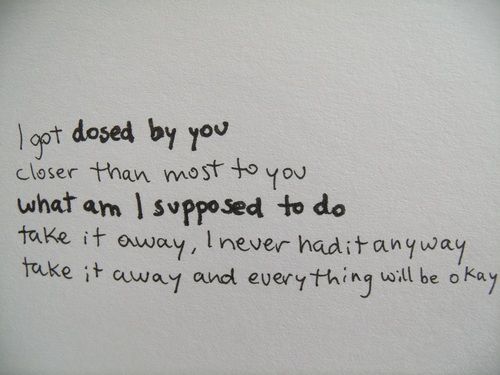 I got dosed by you
closer than most to you
what am I supposed to do
take it away, I never had it anyway
take it away and everything will be okay